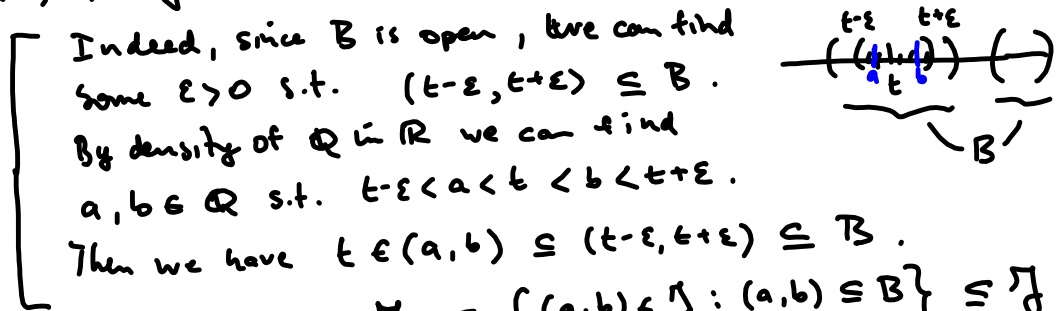 Indeed, since B is open, we can find
some ε>0 s.t. (t-ε,t+ε) ⊆ B.
By density of ℚ in ℝ we can find
a,b ∈ ℚ s.t. t-ε<a<t<b<t+ε.
Then we have t ∈ (a,b) ⊆ (t-ε,t+ε) ⊆ B.
{(a,b) ∈ J : (a,b) ⊆ B} ⊆ J
t-ε t+ε
a t b
B